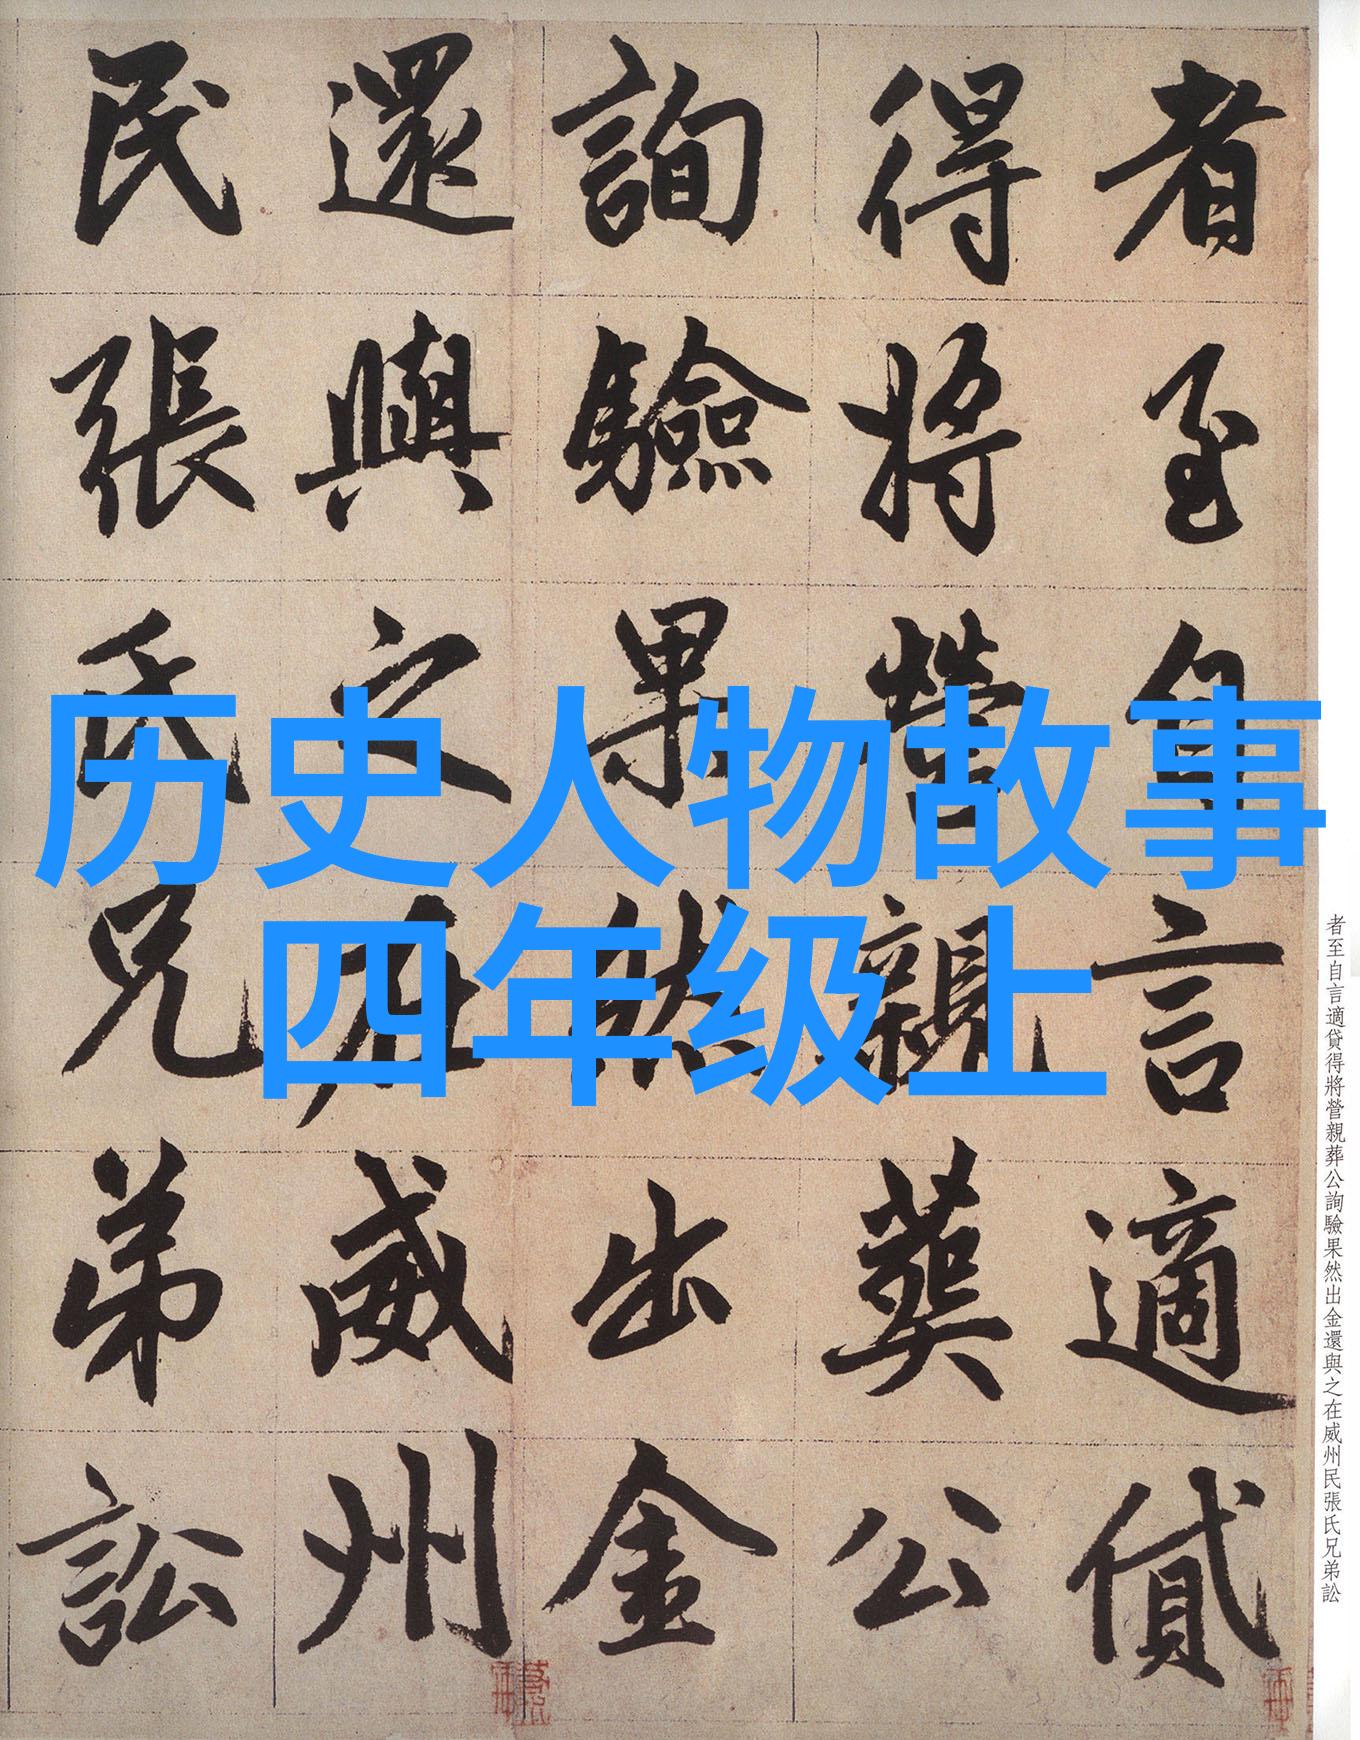 历史人物故事
四年级上
者至自言適貸
得將營親葬公
詢驗果然出金
還與之在威州
民張氏兄弟訟
者至自言適貸得將營親葬公詢驗果然出金還與之在威州民張氏兄弟訟